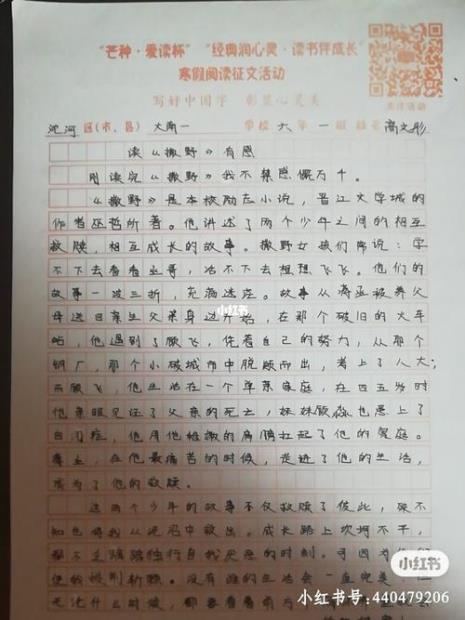 “芒种·爱读杯” “经典润心灵·读书伴成长”
寒假阅读征文活动
写好中国字 彰显心灵美
关注活动
沈河 区(市、县) 大南一 学校 六 年 一 班 姓名 高文彤
读《撒野》有感
刚读完《撒野》我不禁思慨万千。
《撒野》是本校励志小说,晋江文学城的
作者巫哲所著。他讲述了两个少年之间的相互
救赎,相互成长的故事。撒野女孩们常说:学
不下去看看丞哥,活不下去想想飞飞。他们的
故事一波三折,充满迷茫。故事从蒋丞被养父
母送回亲生父亲身边开始,在那个破旧的火车
站,他遇到了顾飞,凭着自己的努力,从那个
钢厂,那个小破城市中脱颖而出,考上了人大;
而顾飞,他生活在一个单亲家庭,在四五岁时
他亲眼见证了父亲的死亡,妹妹顾淼也患上了
自闭症,他用他的肩膀扛起了他的家庭。
在他最痛苦的时候,走进了他的生活,
成为了他的救赎。
这两个少年的故事不仅救赎了彼此,
知也将我从泥沼中救出。成长路上坎坷不平,
独行自我厌恶的时刻。
没有谁的生活会一直完美,但
无论什么时候,都要看着前方
小红书
小红书
小红书号:440479206